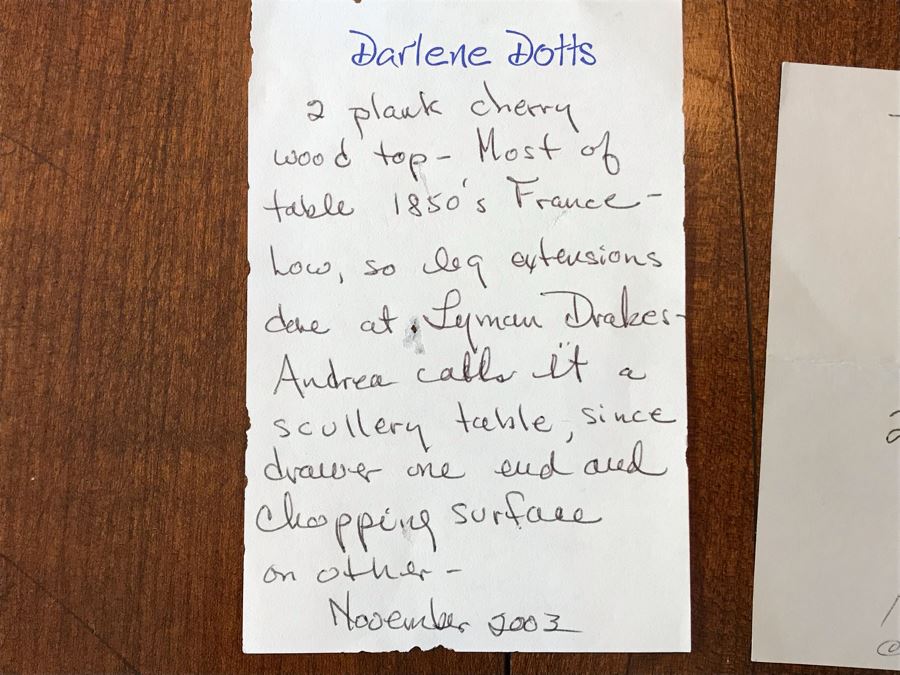 Darlene Dotts
2 plank cherry
wood top- Most of
table 1850's France-
Low, so leg extensions
done at Lyman Drakes-
Andrea calls it a
scullery table, since
drawer one end and
Chopping surface
on other-
November 2003
2